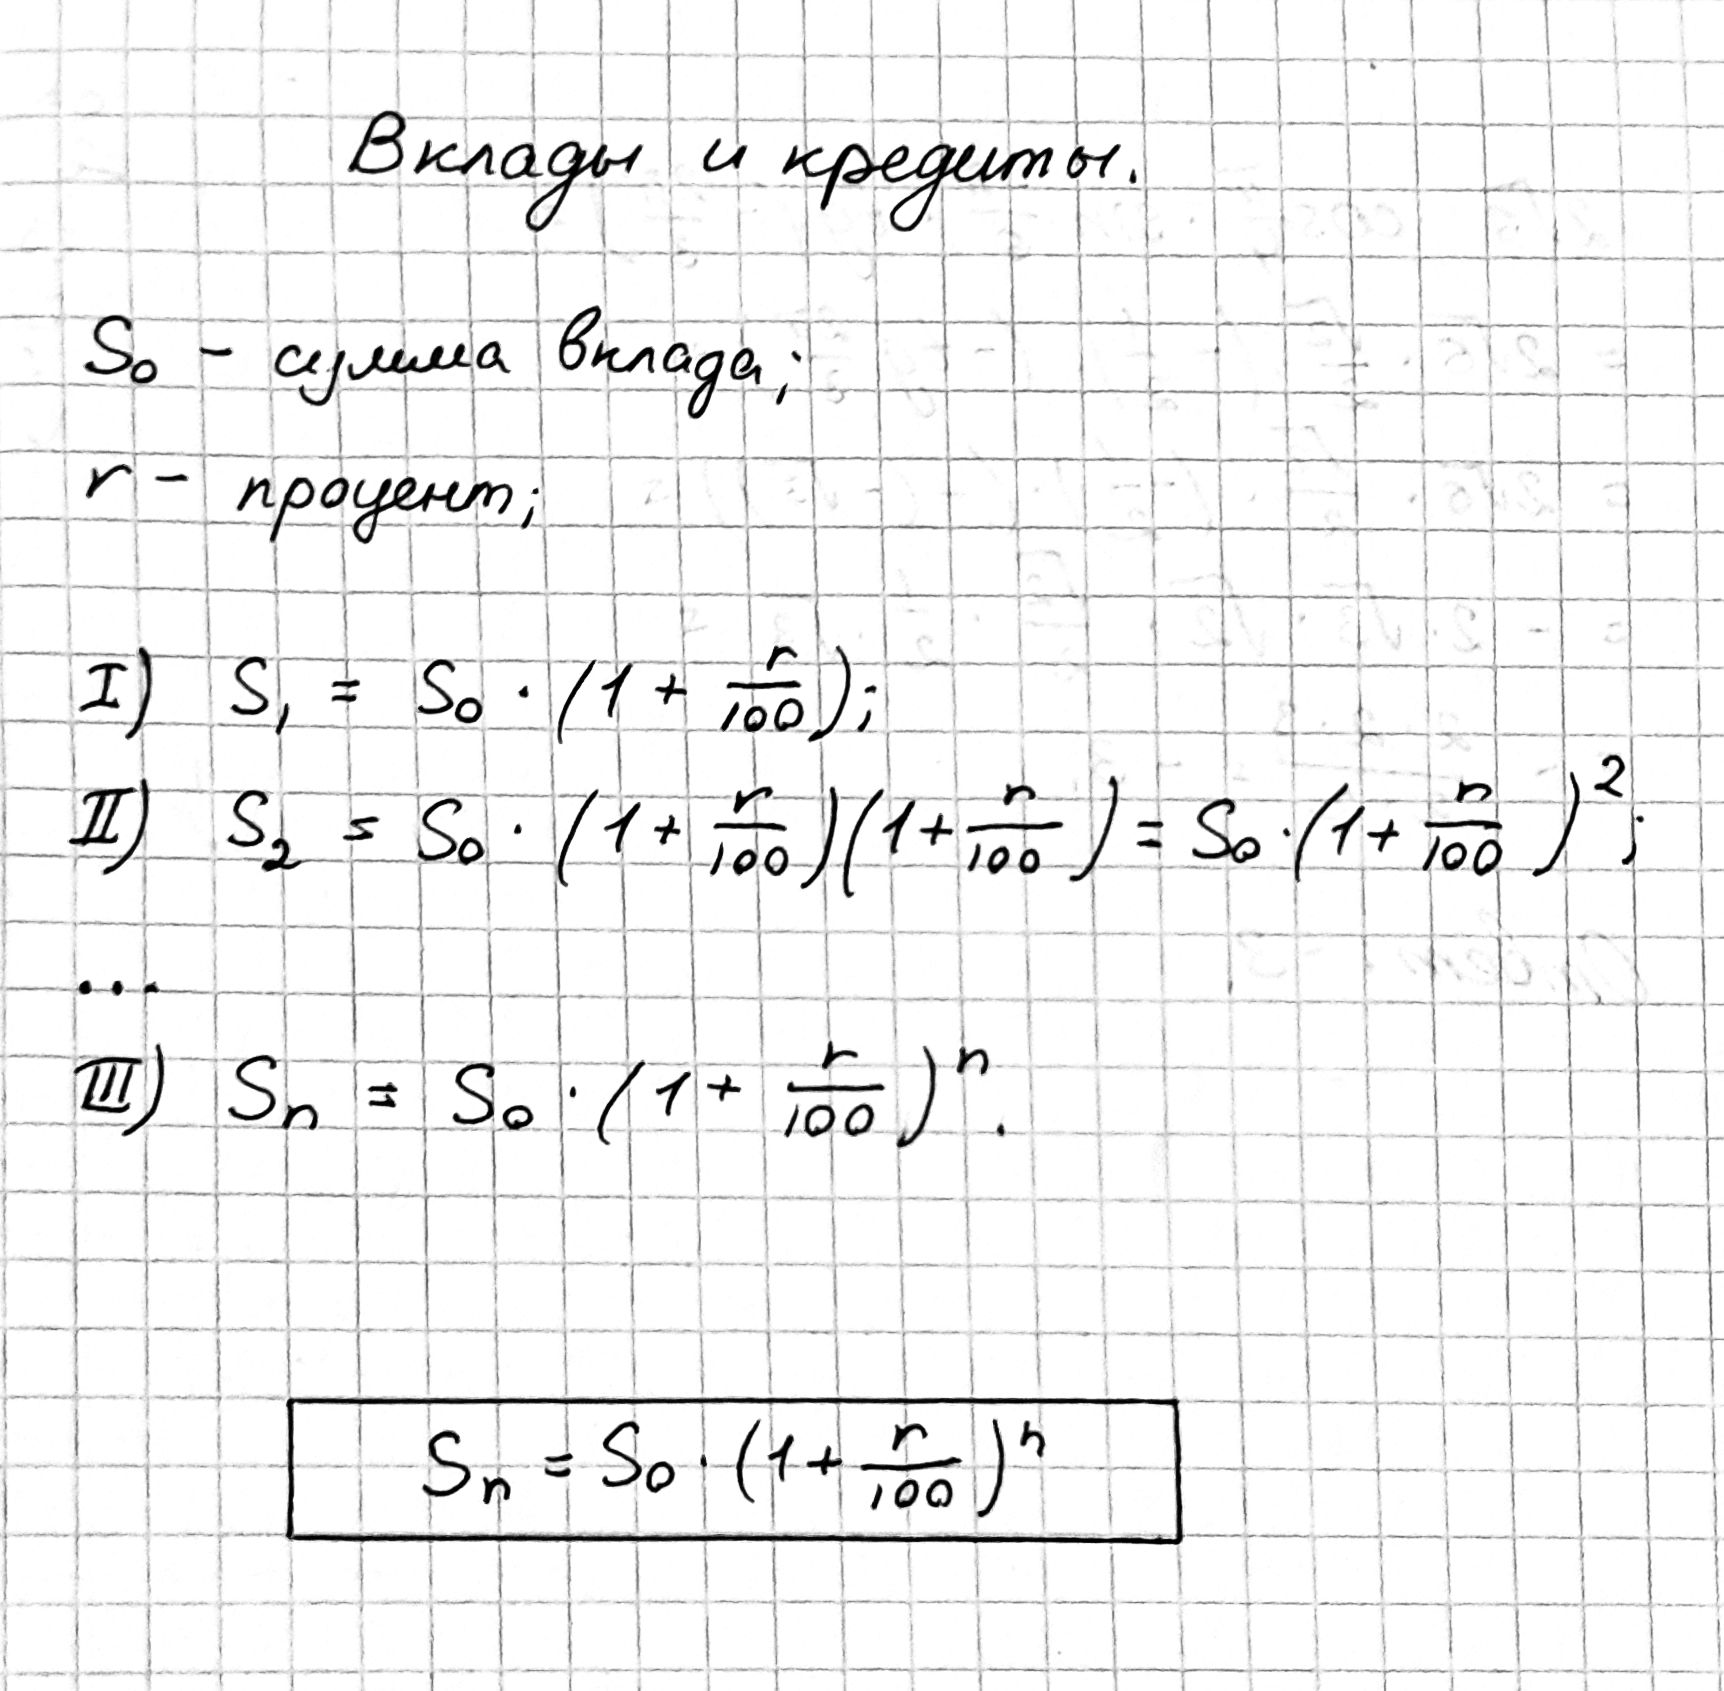 Вклады и кредиты.
S₀ - сумма вклада;
r - процент;
I) S₁ = S₀ · (1 + r/100);
II) S₂ = S₀ · (1 + r/100)(1 + r/100) = S₀ · (1 + r/100)²;
...
III) Sₙ = S₀ · (1 + r/100)ⁿ.
Sₙ = S₀ · (1 + r/100)ⁿ